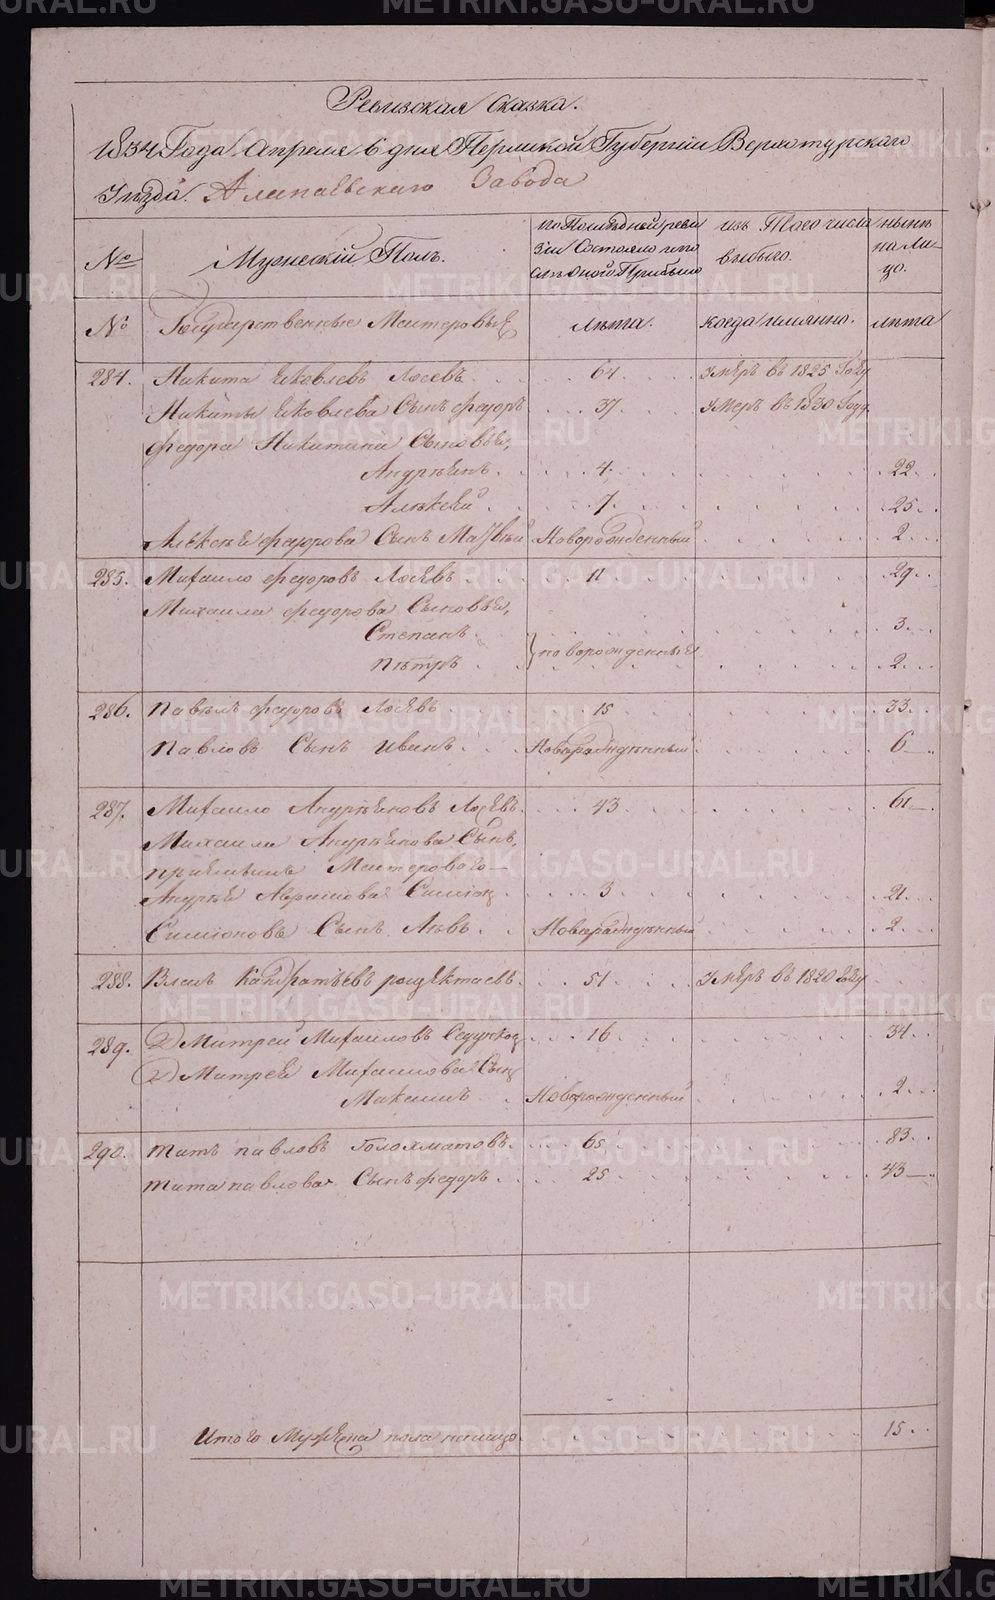 METRIKI.GASO-URAL.RU
Ревизская Сказка.
1834 Года Апреля 6 дня Пермской Губернии Верхотурскаго
Уѣзда. Алапаевскаго Завода
№ Мужескій Полъ. по Последней реви из Того числа нынѣ
зіи Состояло и по выбыло. на ли
слѣ оного Прибыло цо.
№ Государственные Мастеровые лѣта. когда имянно. лѣта
284. Никита Яковлевъ Лосевъ 64 умеръ въ 1825 Году
Никиты Яковлева Сынъ федоръ 37 умеръ въ 1830 Году
федора Никитина Сыновья,
Андреянъ 4. 22
Алексей 7. 25
Алексея федорова Сынъ Матвѣй Новорожденный 2
285. Михаило федоровъ Лосевъ 11 29
Михаила федорова Сыновья,
Степанъ 3.
Петръ новорожденныя 2
286. Павелъ федоровъ Лосевъ 15 33
Павловъ Сынъ Иванъ Новорожденный 6
287. Михаило Андреяновъ Лосевъ 43 61
Михаила Андреянова Сынъ,
приемышъ Мастероваго
Андрея Симион 3 21
Симионовъ Сынъ Левъ Новорожденный 2
288. Власъ 51 умеръ въ 1820 Году
289. Дмитрей Михаиловъ 16 34
Дмитрея Михаилова Сынъ
Максимъ Новорожденный 2
290. титъ павловъ Голохматовъ 65 83
тита павлова Сынъ федоръ 25 43
Итого Мужеска пола налицо 15